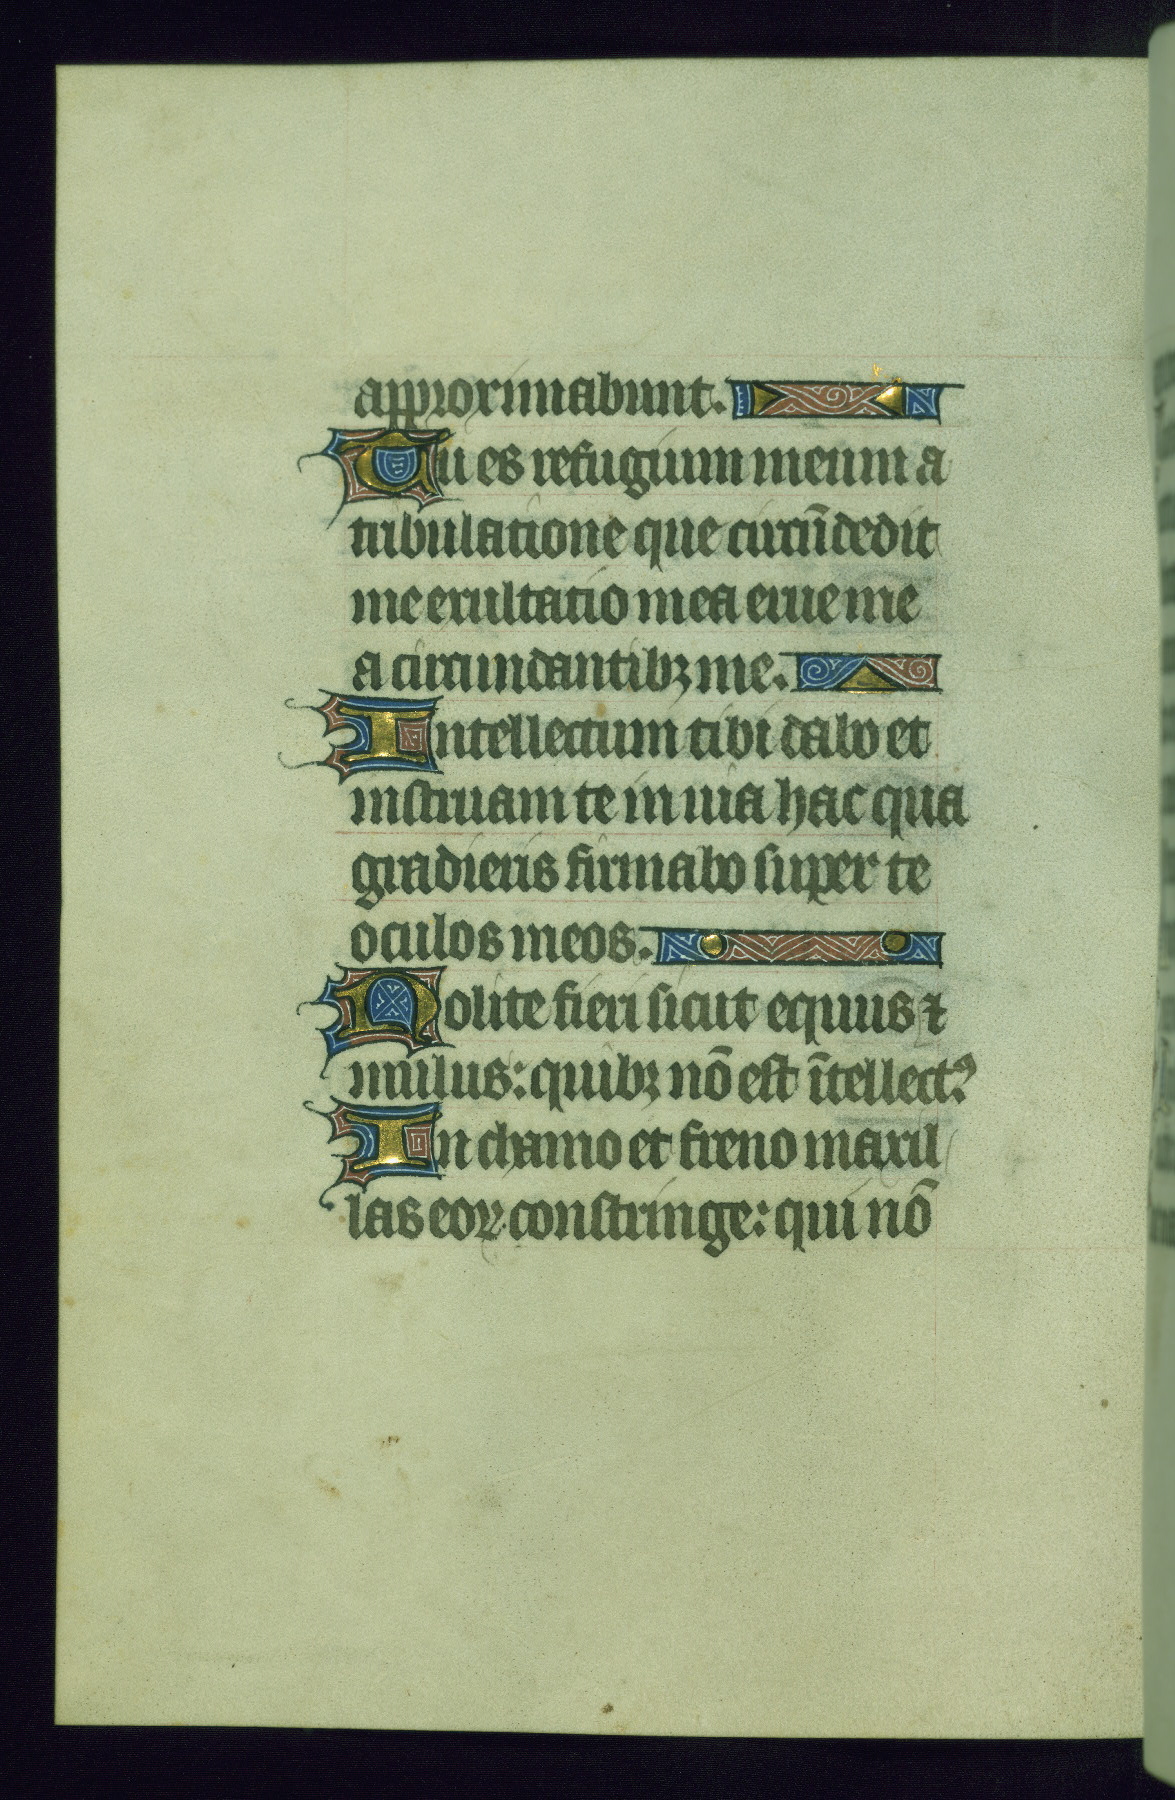 approximabunt.
Tu es refugium meum a
tribulatione que circūdedit
me exultatio mea erue me
a circumdantibꝫ me.
Intellectum tibi dabo et
instruam te in uia hac qua
gradieris firmabo super te
oculos meos.
Nolite fieri sicut equus ⁊
mulus: quibꝫ nō est ītellectꝰ
In chamo et freno maxil
las eoꝝ constringe: qui nō